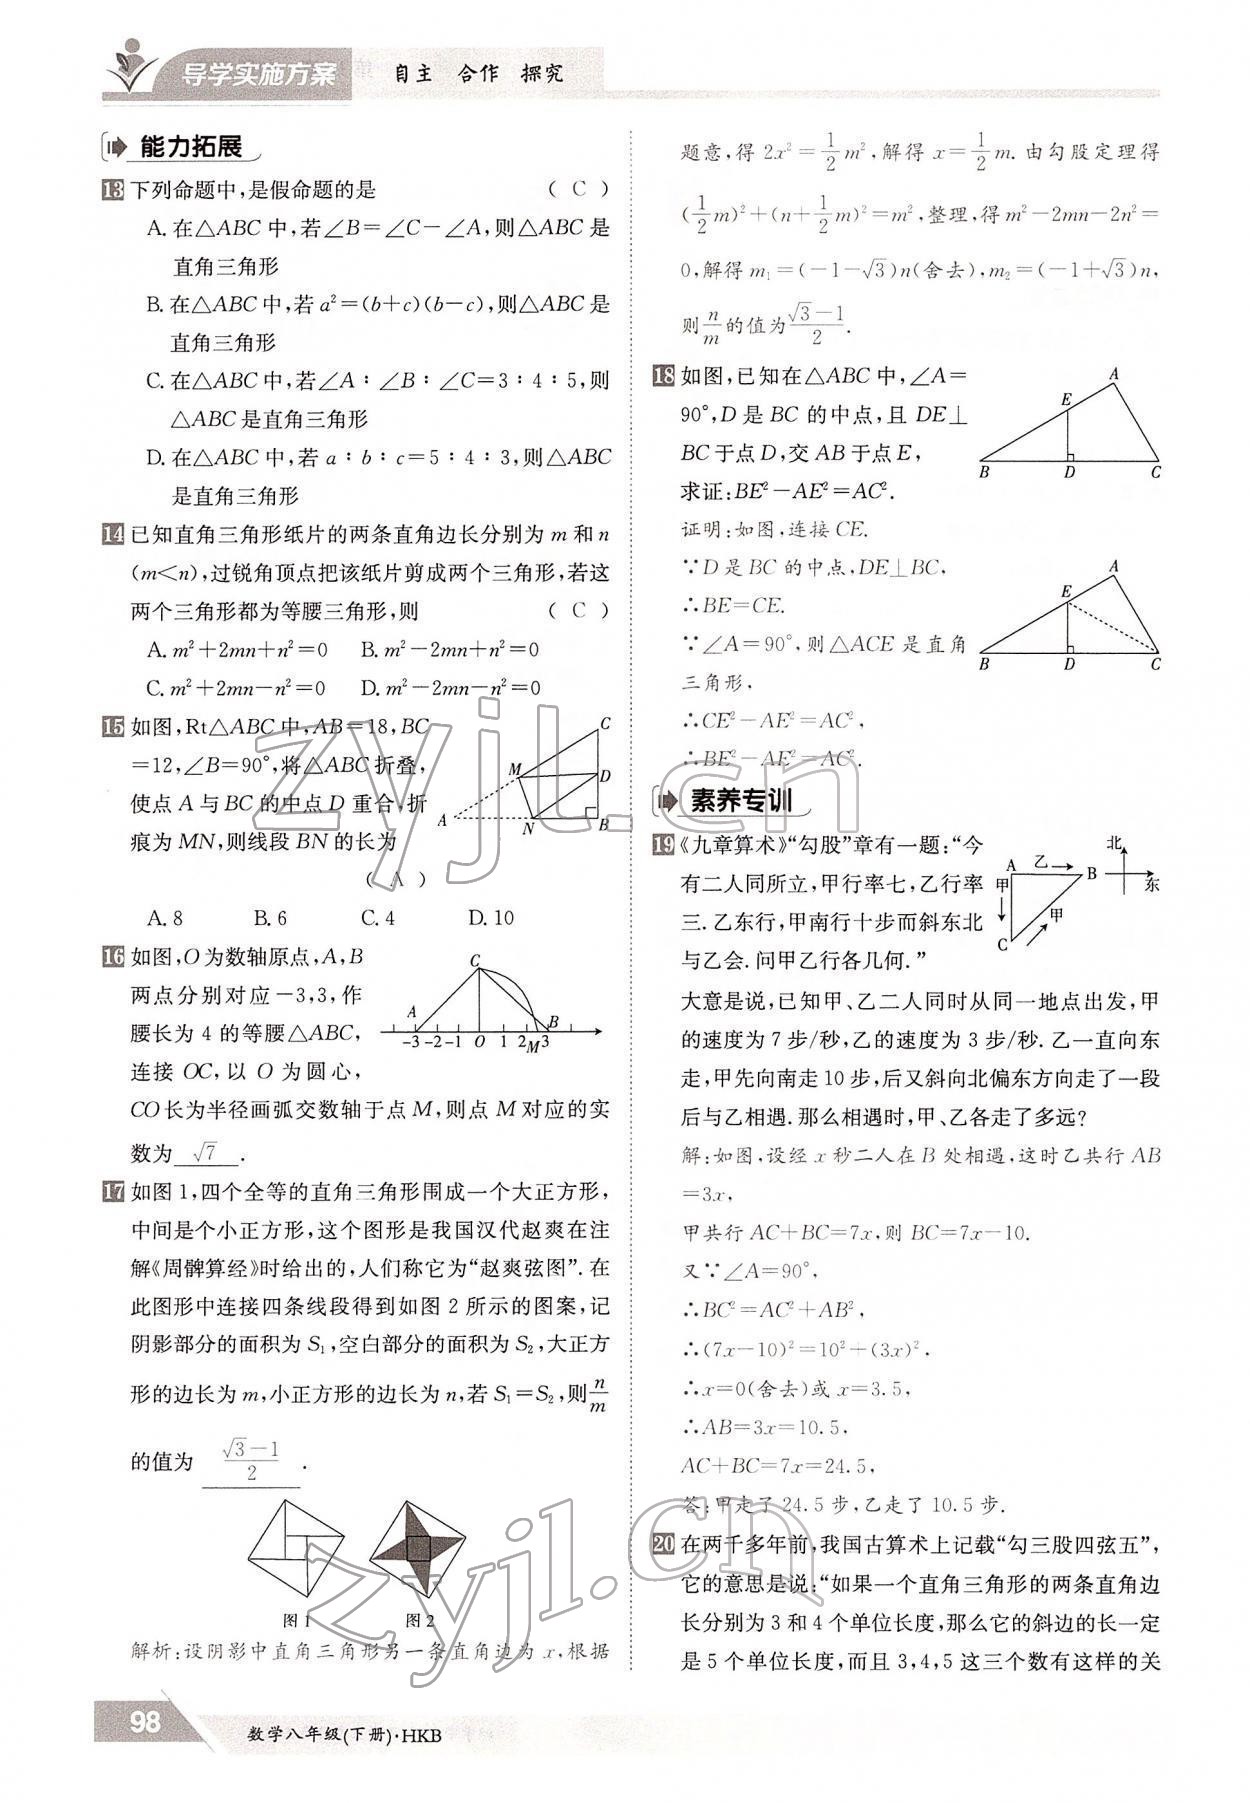 导学实施方案
自主 合作 探究
能力拓展
13 下列命题中,是假命题的是 ( C )
A. 在△ABC中,若∠B=∠C-∠A,则△ABC是
直角三角形
B. 在△ABC中,若a²=(b+c)(b-c),则△ABC是
直角三角形
C. 在△ABC中,若∠A∶∠B∶∠C=3∶4∶5,则
△ABC是直角三角形
D. 在△ABC中,若a∶b∶c=5∶4∶3,则△ABC
是直角三角形
14 已知直角三角形纸片的两条直角边长分别为m和n
(m<n),过锐角顶点把该纸片剪成两个三角形,若这
两个三角形都为等腰三角形,则 ( C )
A. m²+2mn+n²=0 B. m²-2mn+n²=0
C. m²+2mn-n²=0 D. m²-2mn-n²=0
15 如图,Rt△ABC中,AB=18,BC
=12,∠B=90°,将△ABC折叠,
使点A与BC的中点D重合,折
痕为MN,则线段BN的长为
( A )
A. 8 B. 6 C. 4 D. 10
C
M
D
A
N
B
16 如图,O为数轴原点,A,B
两点分别对应-3,3,作
腰长为4的等腰△ABC,
连接OC,以O为圆心,
CO长为半径画弧交数轴于点M,则点M对应的实
数为 √7 .
C
A
B
-3 -2 -1 O 1 2 M 3
17 如图1,四个全等的直角三角形围成一个大正方形,
中间是个小正方形,这个图形是我国汉代赵爽在注
解《周髀算经》时给出的,人们称它为“赵爽弦图”.在
此图形中连接四条线段得到如图2所示的图案,记
阴影部分的面积为S₁,空白部分的面积为S₂,大正方
形的边长为m,小正方形的边长为n,若S₁=S₂,则n/m
的值为 (√3-1)/2 .
图1 图2
解析:设阴影中直角三角形另一条直角边为x,根据
题意,得2x²=1/2 m²,解得x=1/2 m.由勾股定理得
(1/2 m)²+(n+1/2 m)²=m²,整理,得m²-2mn-2n²=
0,解得m₁=(-1-√3)n(舍去),m₂=(-1+√3)n,
则n/m的值为(√3-1)/2.
18 如图,已知在△ABC中,∠A=
90°,D是BC的中点,且DE⊥
BC于点D,交AB于点E,
求证:BE²-AE²=AC².
A
E
B D C
证明:如图,连接CE.
∵D是BC的中点,DE⊥BC,
∴BE=CE.
∵∠A=90°,则△ACE是直角
三角形,
∴CE²-AE²=AC²,
∴BE²-AE²=AC².
A
E
B D C
素养专训
19 《九章算术》“勾股”章有一题:“今
有二人同所立,甲行率七,乙行率
三.乙东行,甲南行十步而斜东北
与乙会.问甲乙行各几何.”
A 乙 B
甲
甲
C
北
东
大意是说,已知甲、乙二人同时从同一地点出发,甲
的速度为7步/秒,乙的速度为3步/秒.乙一直向东
走,甲先向南走10步,后又斜向北偏东方向走了一段
后与乙相遇.那么相遇时,甲、乙各走了多远?
解:如图,设经x秒二人在B处相遇,这时乙共行AB
=3x,
甲共行AC+BC=7x,则BC=7x-10.
又∵∠A=90°,
∴BC²=AC²+AB²,
∴(7x-10)²=10²+(3x)².
∴x=0(舍去)或x=3.5,
∴AB=3x=10.5,
AC+BC=7x=24.5,
答:甲走了24.5步,乙走了10.5步.
20 在两千多年前,我国古算术上记载“勾三股四弦五”,
它的意思是说:“如果一个直角三角形的两条直角边
长分别为3和4个单位长度,那么它的斜边的长一定
是5个单位长度,而且3,4,5这三个数有这样的关
98
数学八年级(下册)·HKB
zyjl.cn
zyjl.cn